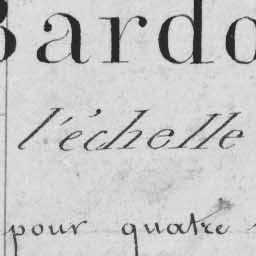 Bardo
l'échelle
pour quatre